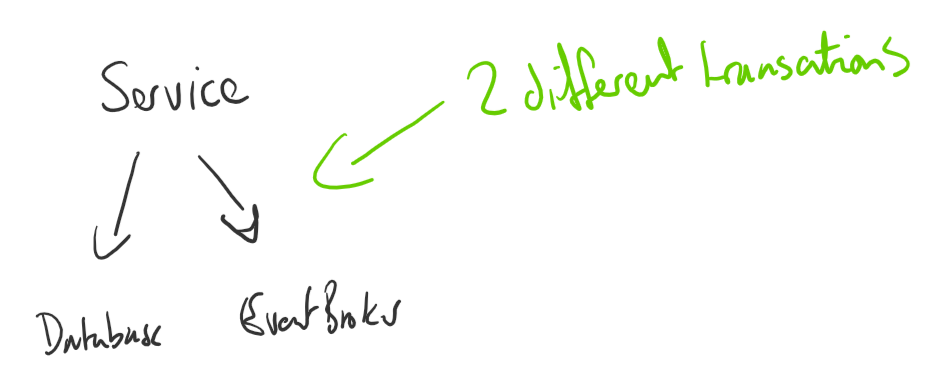 Service
2 different transations
Database
Event Broker